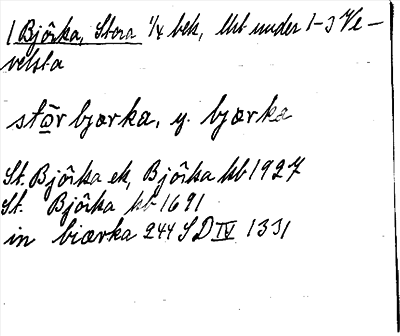 1 Björka, Stora 1/4 bek, Utst under 1-3 Ve-
velsta
störbjærka, y. bjærka
St. Björka ek, Björka kb 1927
St. Björka kb 1691
in biærka 244 SD IV 1331